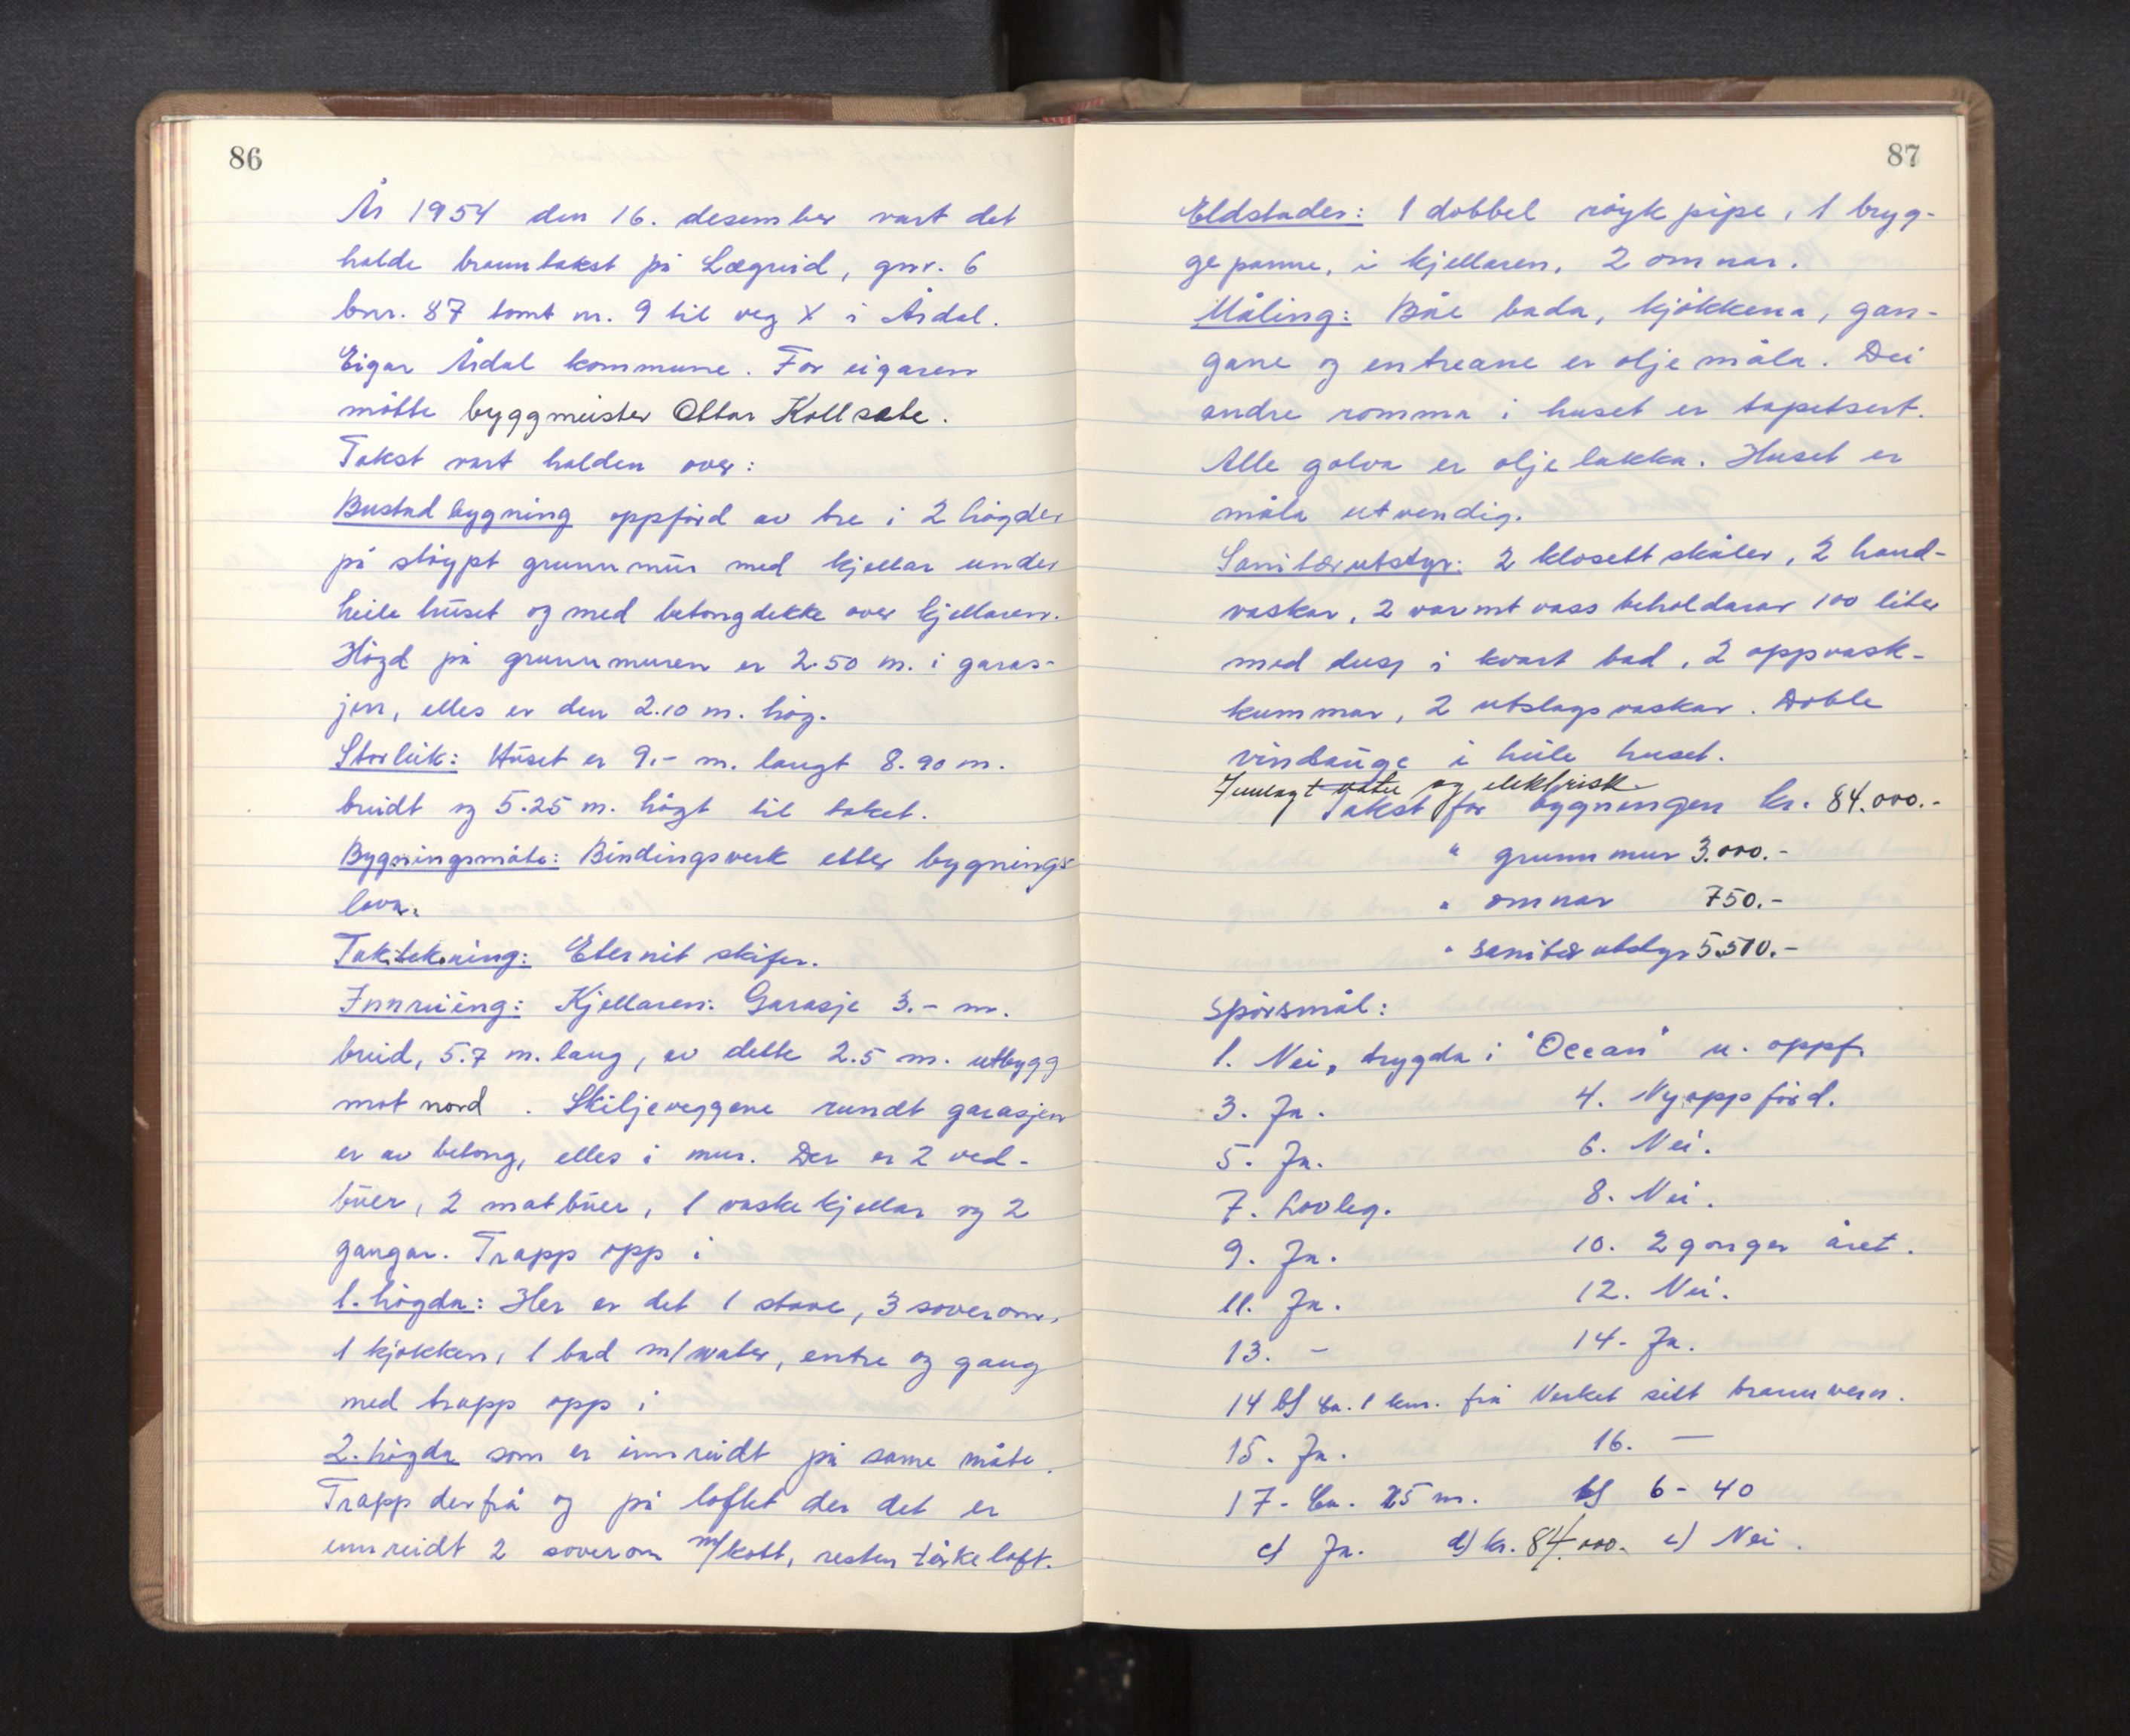 86
År 1954 den 16. desember vart det
halde branntakst på Lægreid, gnr. 6
bnr. 87 tomt nr. 9 til veg X i Årdal.
Eigar Årdal kommune. For eigaren
møtte byggmeister Ottar Kollsete.
Takst vart halden over:
Bustadbygning oppförd av tre i 2 högder
på støypt grunnmur med kjellar under
heile huset og med betongdekke over kjellaren.
Högd på grunnmuren er 2.50 m. i garas-
jen, elles er den 2.10 m. hög.
Storleik: Huset er 9.- m. langt 8.90 m.
breidt og 5.25 m. högt til taket.
Bygningsmåte: Bindingsverk etter bygnings-
lova.
Taktekning: Eternit skifer.
Innreiing: Kjellaren: Garasje 3.- m.
breid, 5.7 m. lang, av dette 2.5 m. utbygg
mot nord . Skiljeveggene rundt garasjen
er av betong, elles i mur. Der er 2 ved-
buer, 2 matbuer, 1 vaskekjellar og 2
gangar. Trapp opp i
1. högda: Her er det 1 stove, 3 soverom,
1 kjøkken, 1 bad m/water, entre og gang
med trapp opp i
2. högda som er innreidt på same måte.
Trapp derfrå og på loftet der det er
innreidt 2 soverom m/kott, resten tørkeloft.
87
Eldstader: 1 dobbel röykpipe, 1 bryg-
gepanne, i kjellaren, 2 omnar.
Måling: Båe bada, kjökkena, gan-
gane og entreane er oljemåla. Dei
andre romma i huset er tapetsert.
Alle golva er oljelakka. Huset er
måla utvendig.
Sanitærutstyr: 2 klosettskåler, 2 hand-
vaskar, 2 varmtvassbeholdarar 100 liter
med dusj i kvart bad, 2 oppvask-
kummar, 2 utslagsvaskar. Doble
vindauge i heile huset.
Innlagt vatn og elektrisk
Takst for bygningen kr. 84.000.-
" grunnmur 3.000.-
" omnar 750.-
" sanitærutstyr 5.510.-
Spørsmål:
1. Nei, trygda i "Ocean" u. oppf.
3. Ja. 4. Nyoppförd.
5. Ja. 6. Nei.
7. Lovleg. 8. Nei.
9. Ja. 10. 2 gonger året.
11. Ja. 12. Nei.
13. - 14. Ja.
14 b) Ca. 1 km. frå Verket sitt brannvern.
15. Ja. 16. —
17. Ca. 25 m. b) 6 - 40
c) Ja. d) kr. 84.000.- e) Nei.